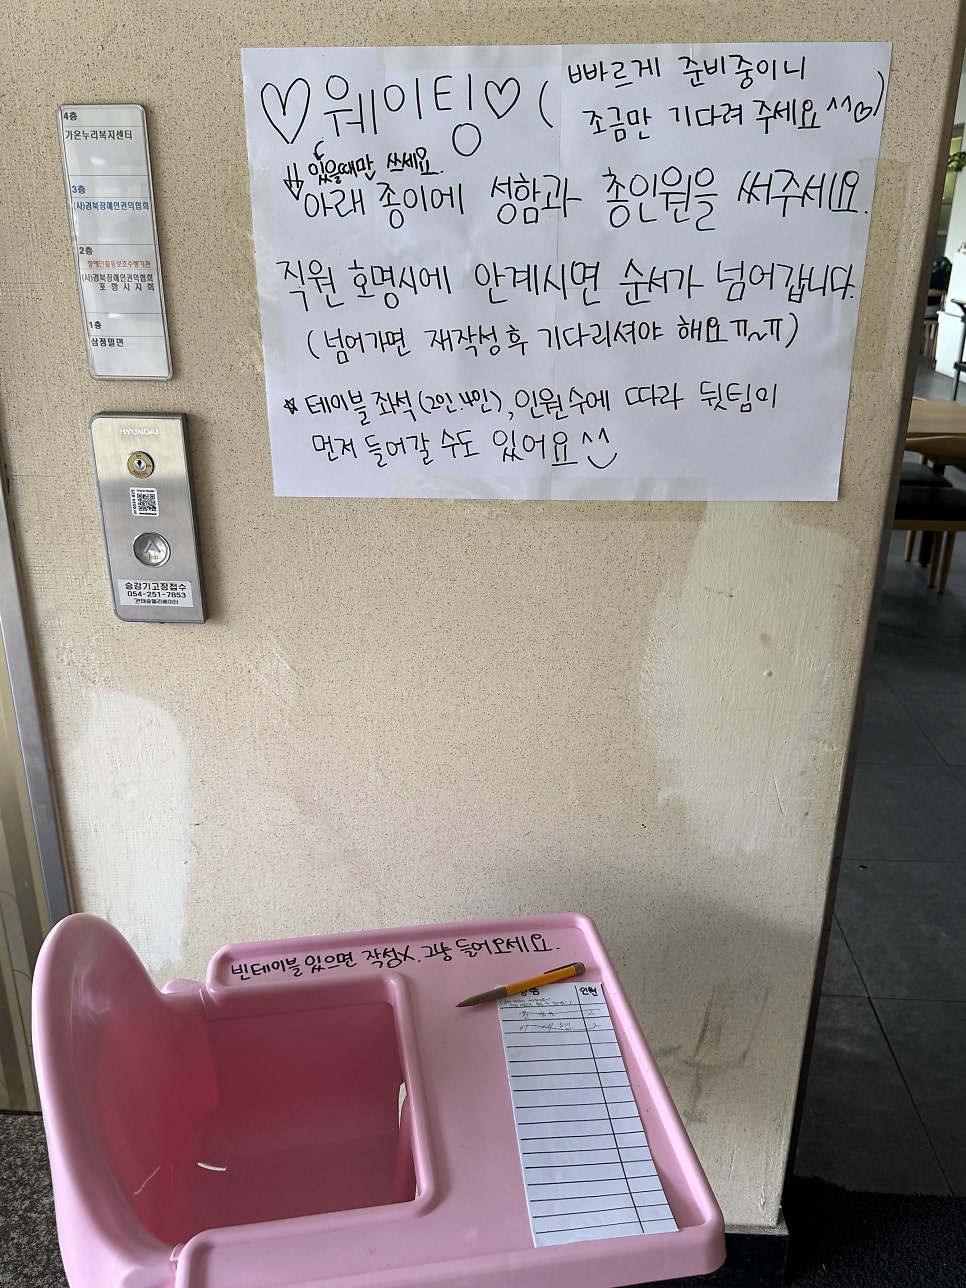 ♡웨이팅♡ (빠르게 준비중이니
조금만 기다려 주세요^^♡)
있을때만 쓰세요.
아래 종이에 성함과 총인원을 써주세요.
직원 호명시에 안계시면 순서가 넘어갑니다.
(넘어가면 재작성 후 기다리셔야 해요ㅠ~ㅠ)
☆ 테이블 좌석(2인.4인), 인원수에 따라 뒷팀이
먼저 들어갈 수도 있어요^^
4층
가온누리복지센터
3층
(사)경북장애인권익협회
2층
장애인활동보조수행기관
(사)경북장애인권익협회
포항시지회
1층
삼정밀면
HYUNDAI
승강기고장접수
054-251-7853
빈테이블 있으면 작성X. 그냥 들어오세요.
인원
2
2